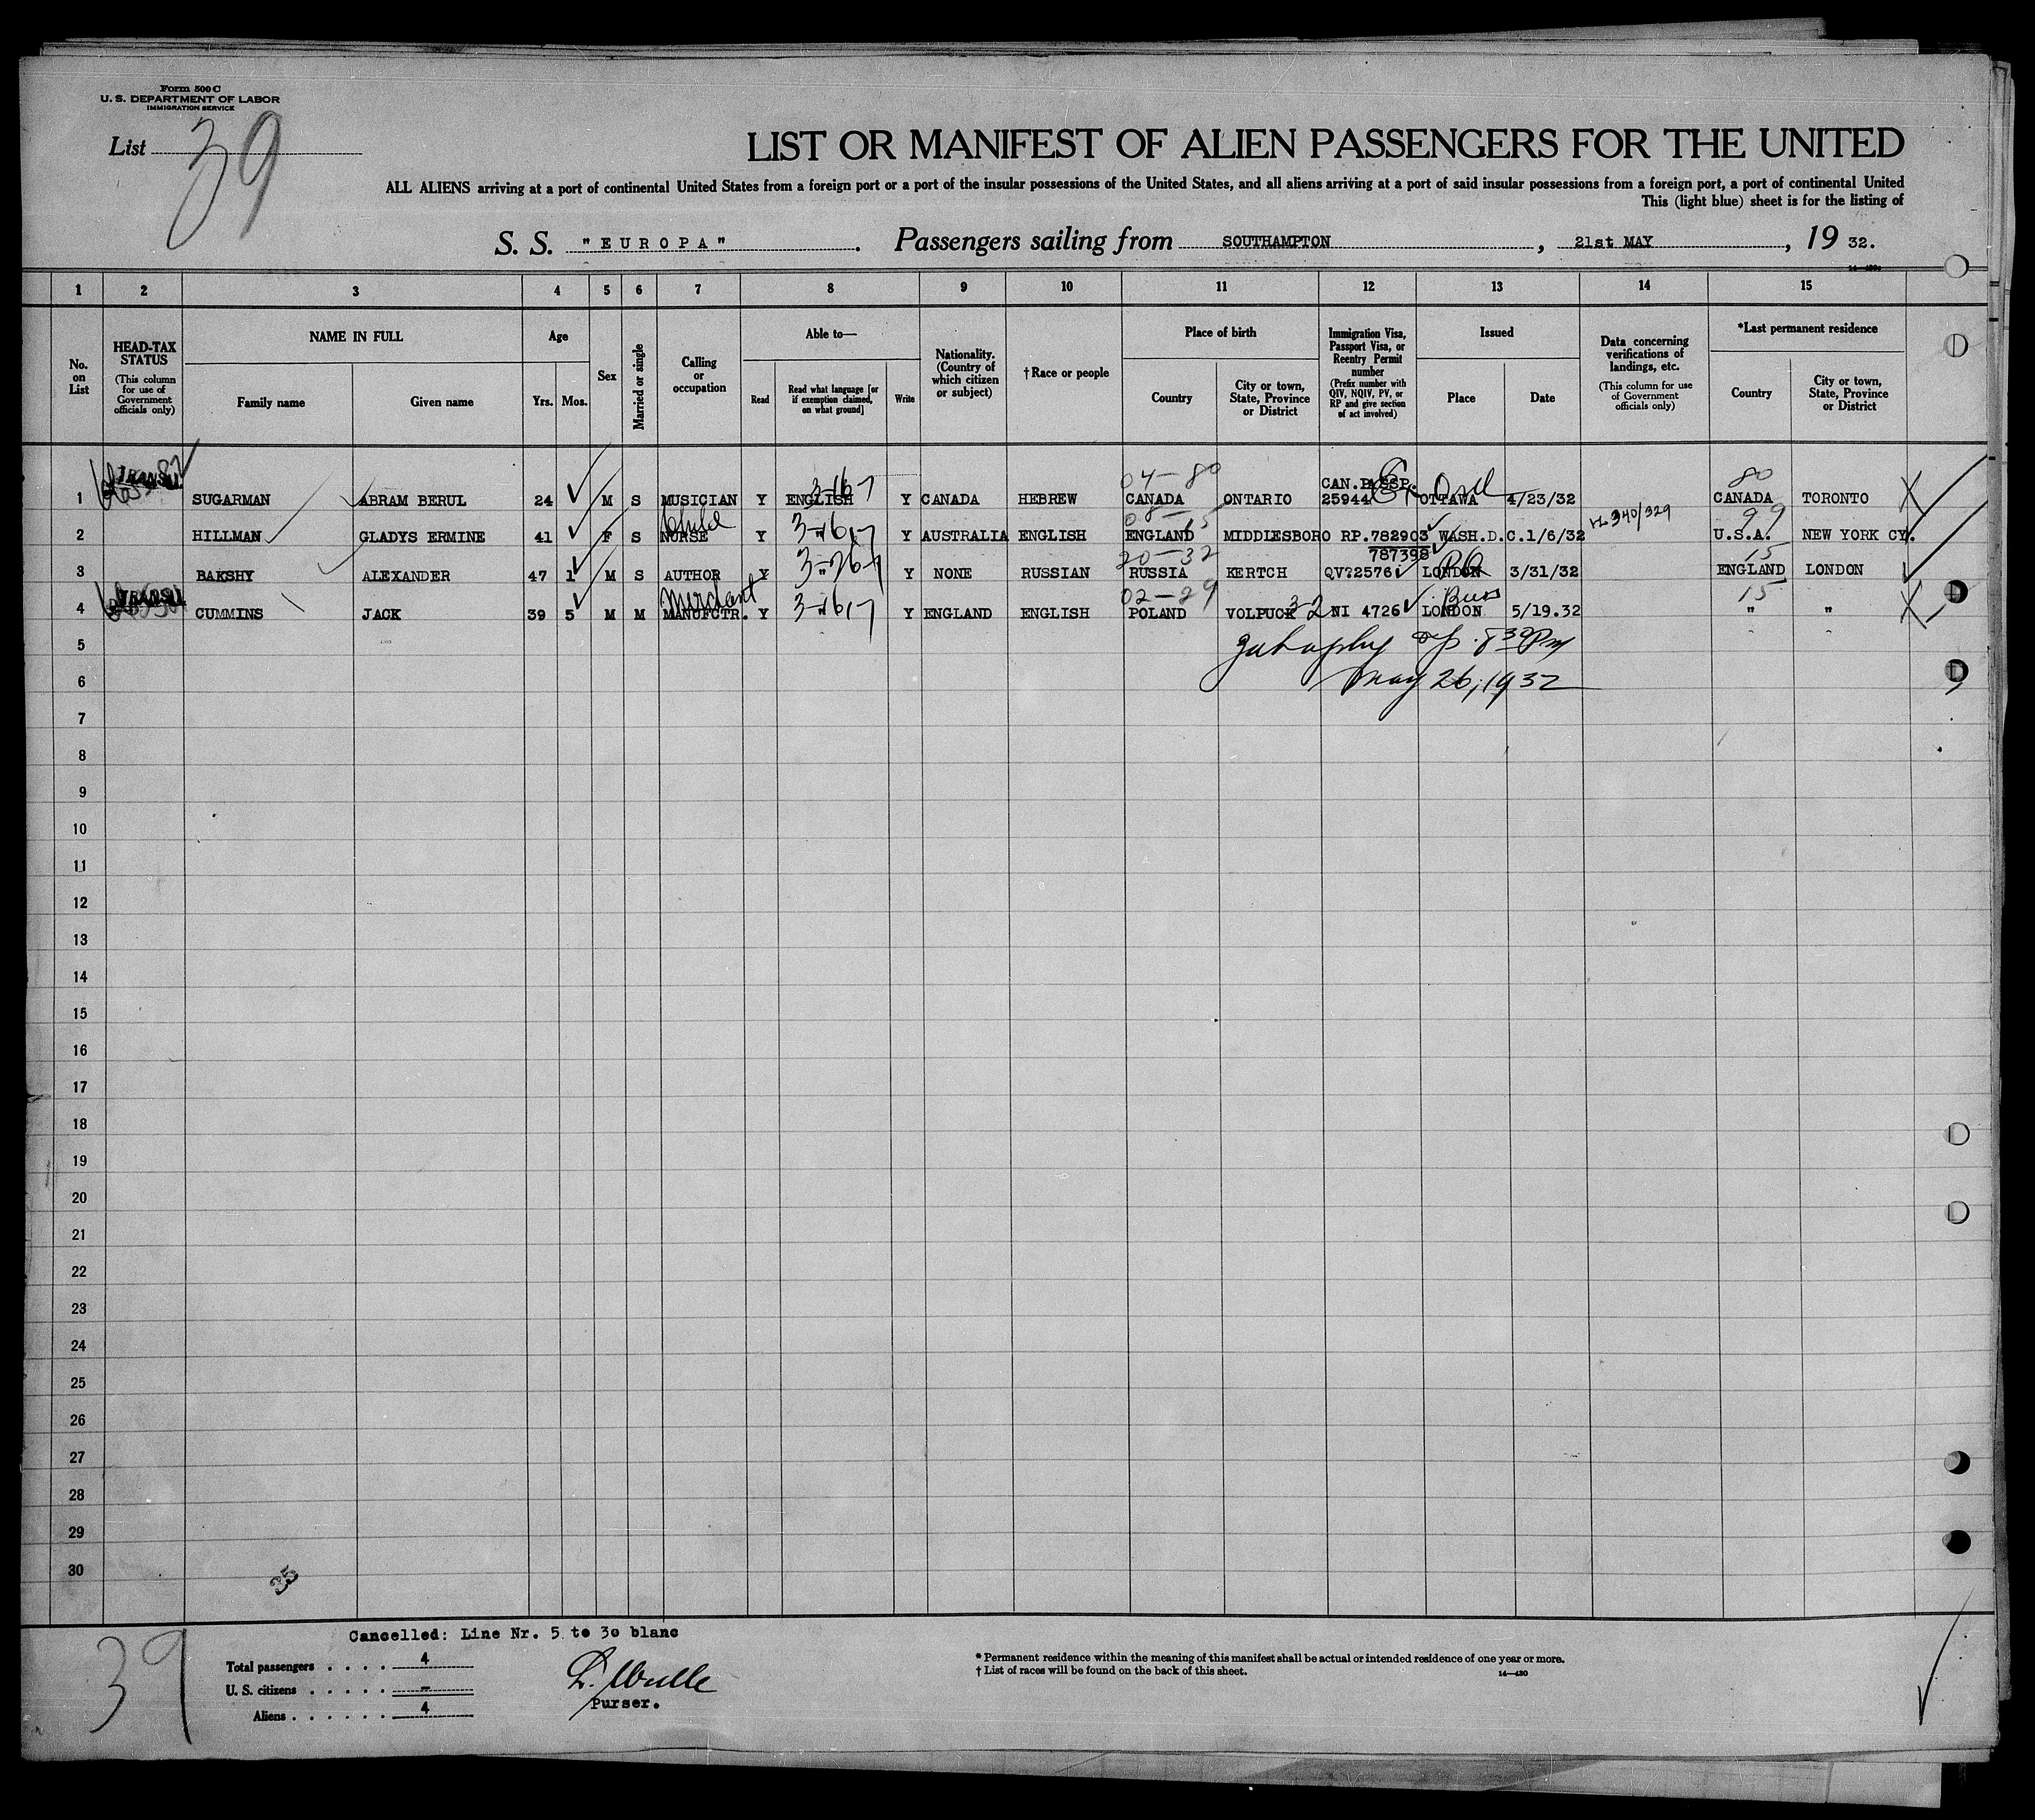 Form 500 C
U. S. DEPARTMENT OF LABOR
IMMIGRATION SERVICE
List 39
LIST OR MANIFEST OF ALIEN PASSENGERS FOR THE UNITED
ALL ALIENS arriving at a port of continental United States from a foreign port or a port of the insular possessions of the United States, and all aliens arriving at a port of said insular possessions from a foreign port, a port of continental United
This (light blue) sheet is for the listing of
S. S. "EUROPA". Passengers sailing from SOUTHAMPTON, 21st MAY, 19 32.
1 2 3 4 5 6 7 8 9 10 11 12 13 14 15
No. on List
HEAD-TAX STATUS (This column for use of Government officials only)
NAME IN FULL
Family name
Given name
Age
Yrs. Mos.
Sex
Married or single
Calling or occupation
Able to—
Read
Read what language [or if exemption claimed, on what ground]
Write
Nationality. (Country of which citizen or subject)
†Race or people
Place of birth
Country
City or town, State, Province or District
Immigration Visa, Passport Visa, or Reentry Permit number (Prefix number with QIV, NQIV, PV, or RP and give section of act involved)
Issued
Place
Date
Data concerning verifications of landings, etc. (This column for use of Government officials only)
*Last permanent residence
Country
City or town, State, Province or District
04-80 CAN.PASSP. 80
1 SUGARMAN ABRAM BERUL 24 M S MUSICIAN Y ENGLISH Y CANADA HEBREW CANADA ONTARIO 25944 OTTAWA 4/23/32 CANADA TORONTO
99
2 HILLMAN GLADYS ERMINE 41 F S NURSE Y " Y AUSTRALIA ENGLISH ENGLAND MIDDLESBORO RP.782903 WASH.D.C.1/6/32 U.S.A. NEW YORK CY.
20-32 787398 15
3 BAKSHY ALEXANDER 47 1 M S AUTHOR Y " Y NONE RUSSIAN RUSSIA KERTCH QV?22576 LONDON 3/31/32 ENGLAND LONDON
Merchant 02-29 15
4 CUMMINS JACK 39 5 M M MANUFCTR. Y " Y ENGLAND ENGLISH POLAND VOLPUCK NI 4726 LONDON 5/19.32 " "
5
6 May 26, 1932
7
8
9
10
11
12
13
14
15
16
17
18
19
20
21
22
23
24
25
26
27
28
29
30
35
39
Cancelled: Line Nr. 5 to 30 blanc
Total passengers . . . . 4
U. S. citizens . . . . . -
Aliens . . . . . . 4
Purser.
* Permanent residence within the meaning of this manifest shall be actual or intended residence of one year or more.
† List of races will be found on the back of this sheet.
14—430